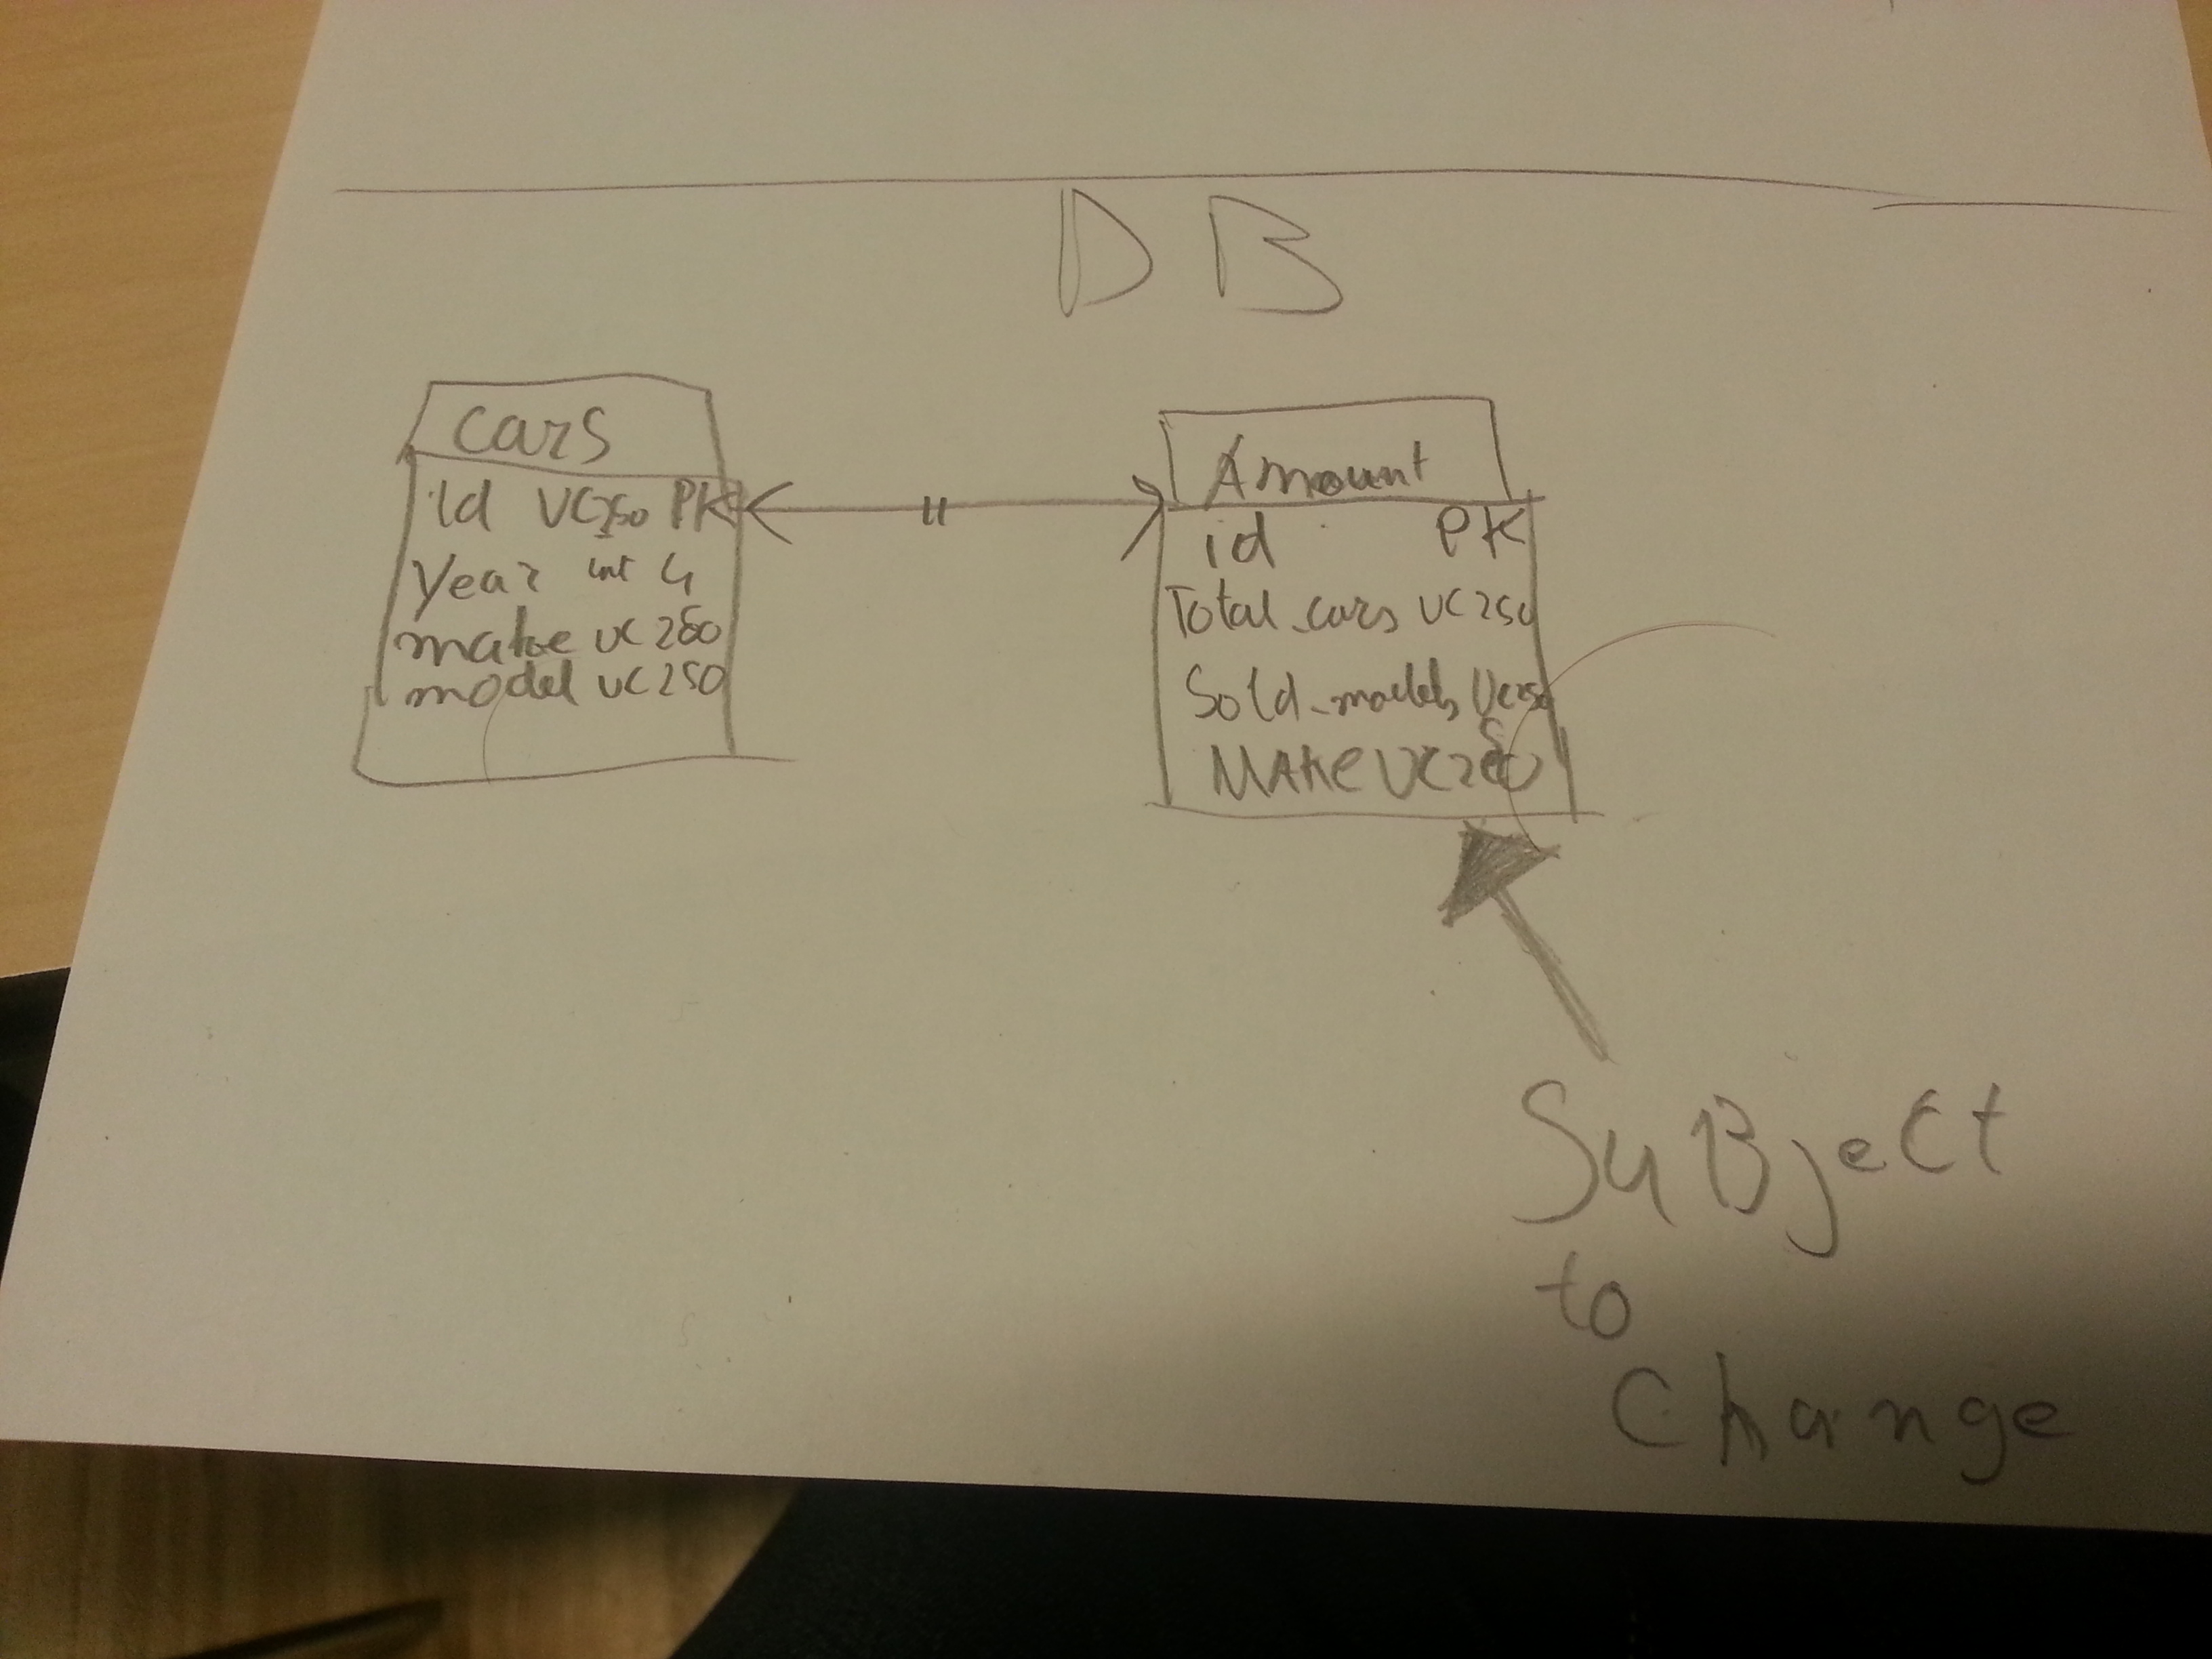 DB
cars
id VC250 PK
Year int 4
make VC250
model VC250
Amount
id PK
Total_cars VC250
Sold_models VC250
MAKE VC250
SuBject
to
Change